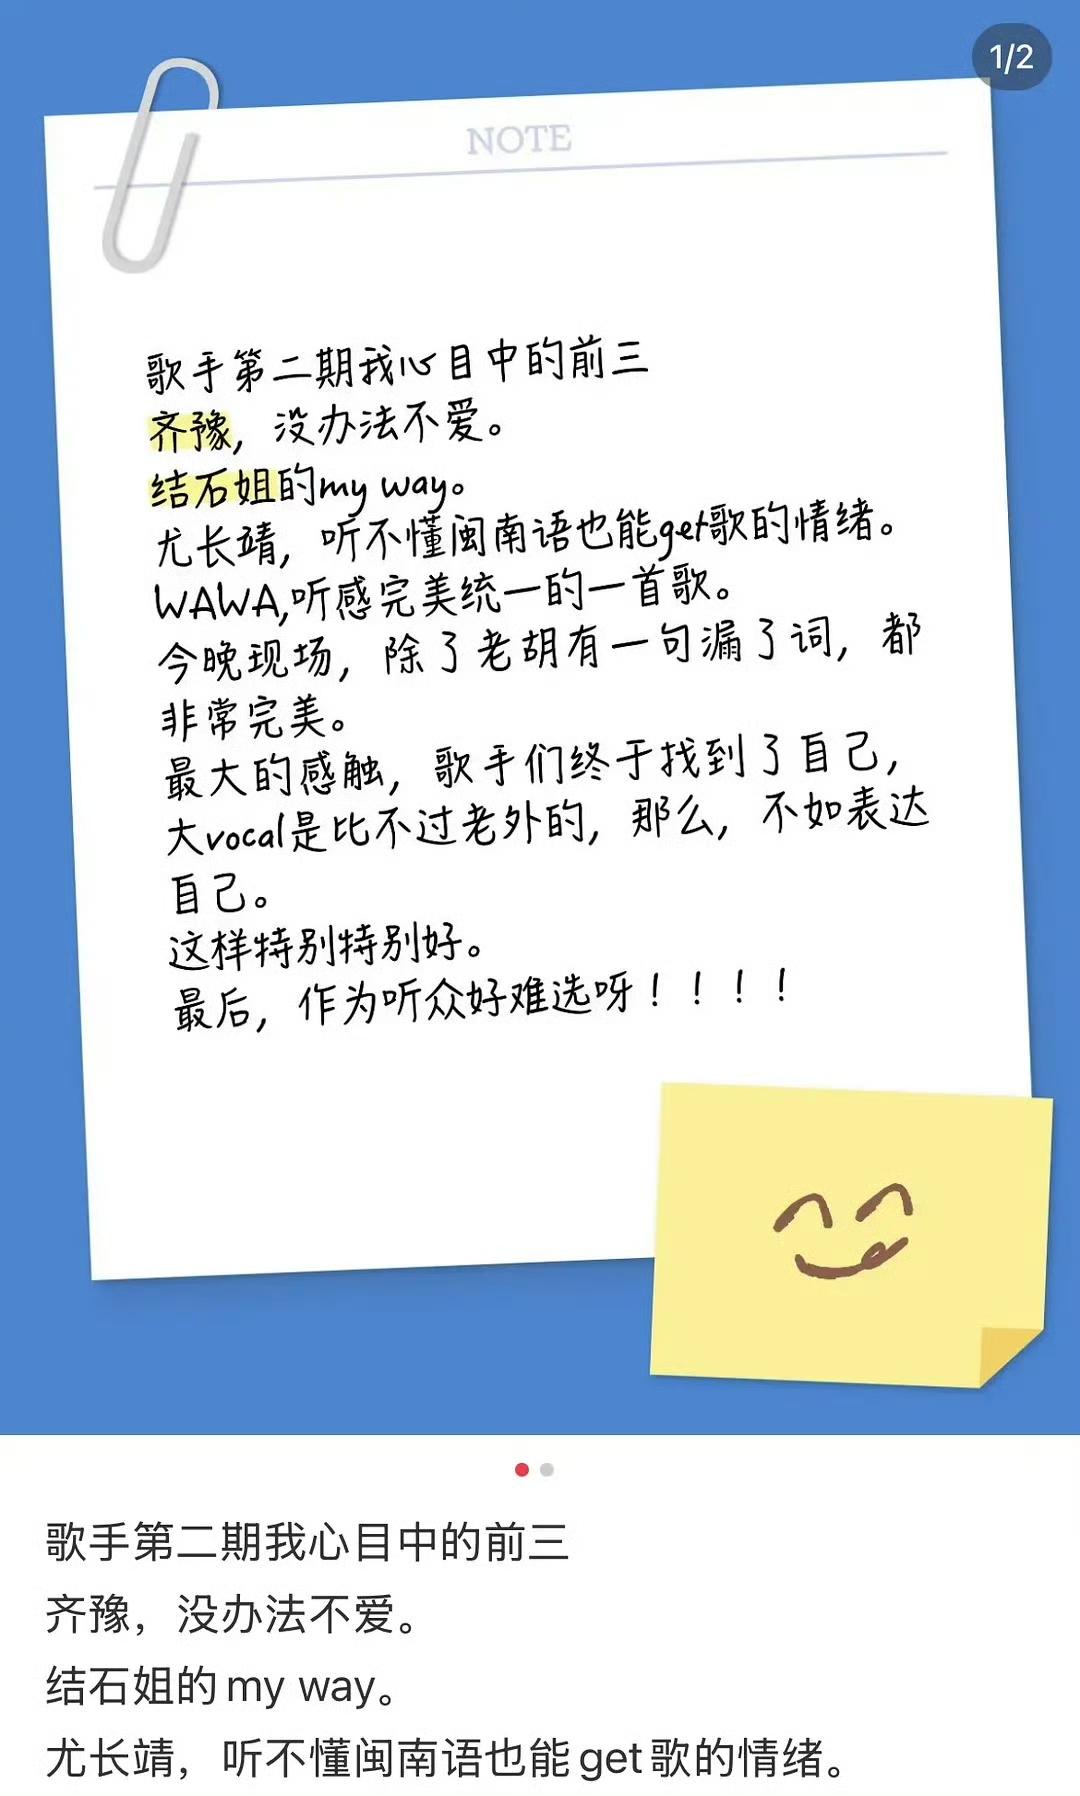 1/2
NOTE
歌手第二期我心目中的前三
齐豫，没办法不爱。
结石姐的my way。
尤长靖，听不懂闽南语也能get歌的情绪。
WAWA,听感完美统一的一首歌。
今晚现场，除了老胡有一句漏了词，都
非常完美。
最大的感触，歌手们终于找到了自己，
大vocal是比不过老外的，那么，不如表达
自己。
这样特别特别好。
最后，作为听众好难选呀！！！！
歌手第二期我心目中的前三
齐豫，没办法不爱。
结石姐的my way。
尤长靖，听不懂闽南语也能get歌的情绪。